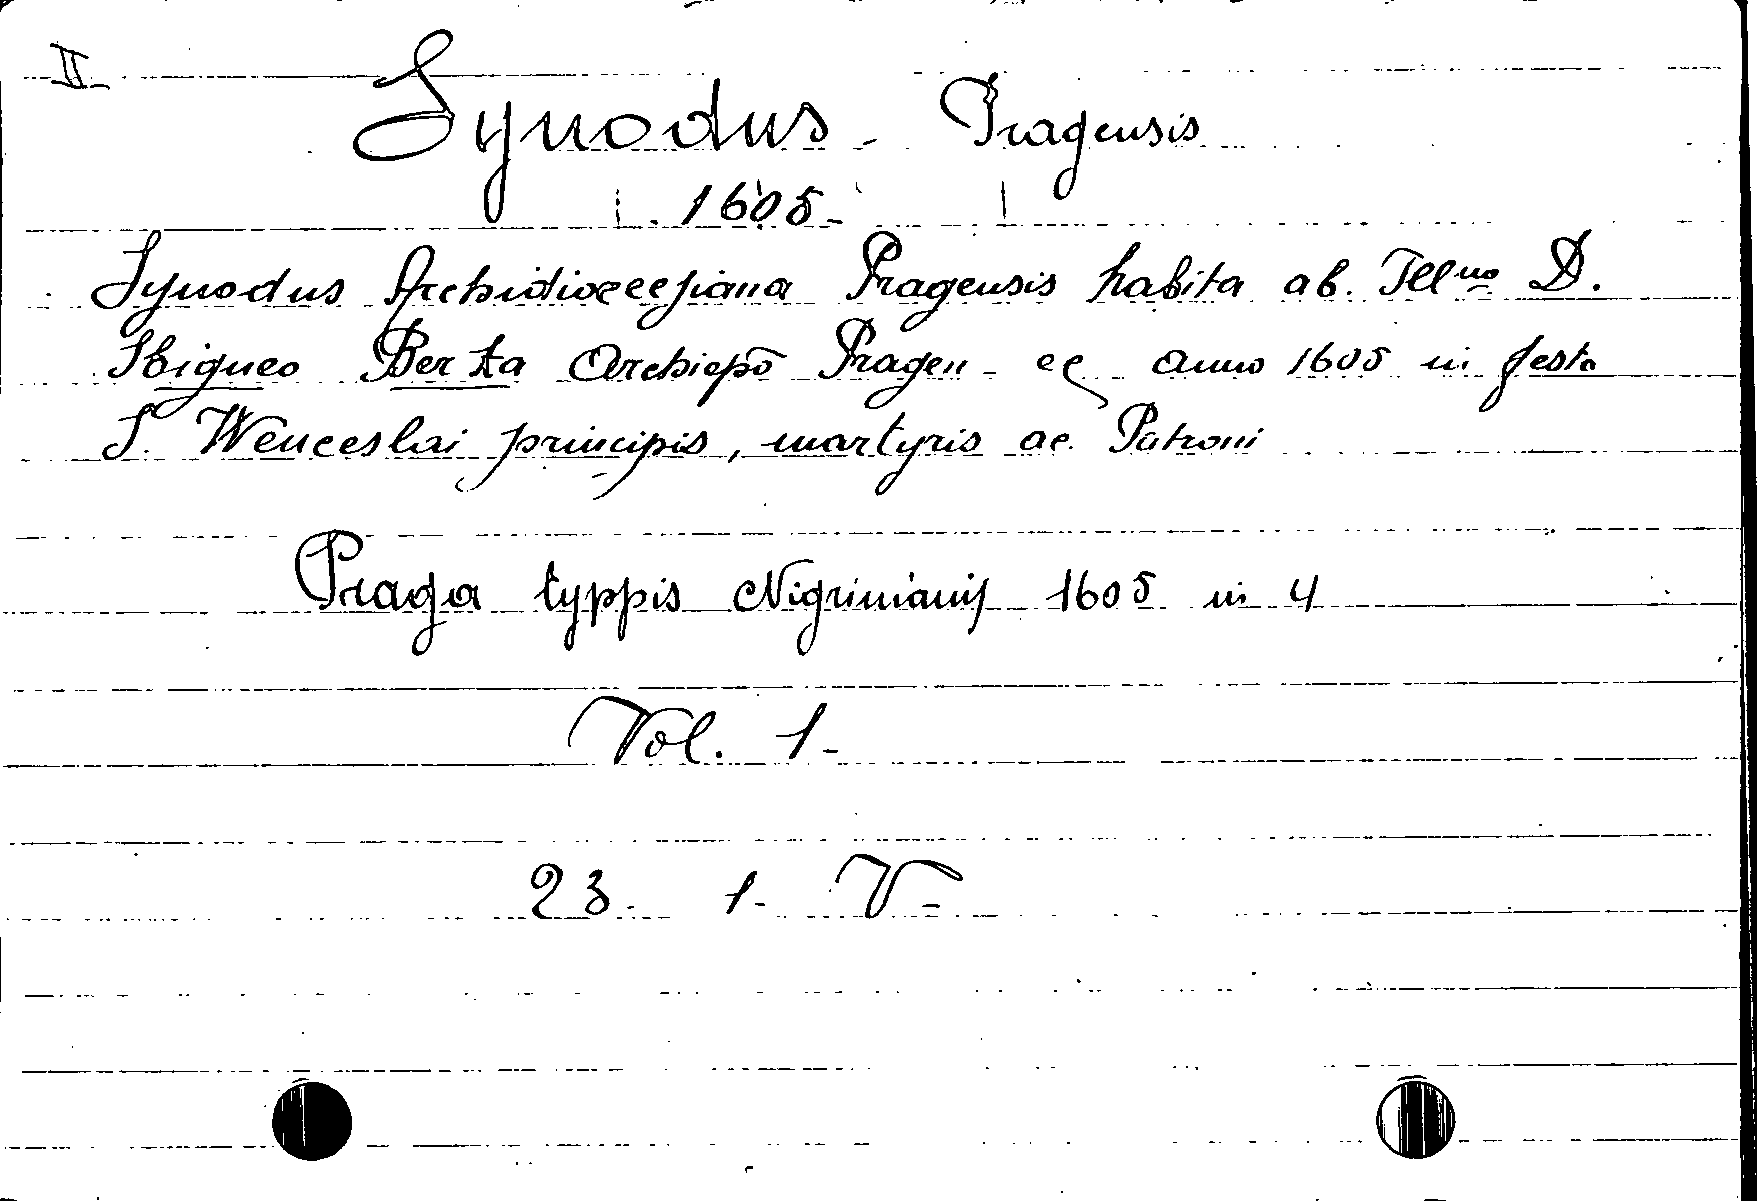 II
Synodus - Pragensis
1605-
Synodus Archidioecesiana Pragensis habita ab. Illmo D.
Sbigneo Berka Archiepō Pragen - ec anno 1605 in festo
S. Wenceslai principis, martyris ac Patroni
Praga typpis Nigrinianis 1605 in 4
Vol. 1-
23. 1- V-